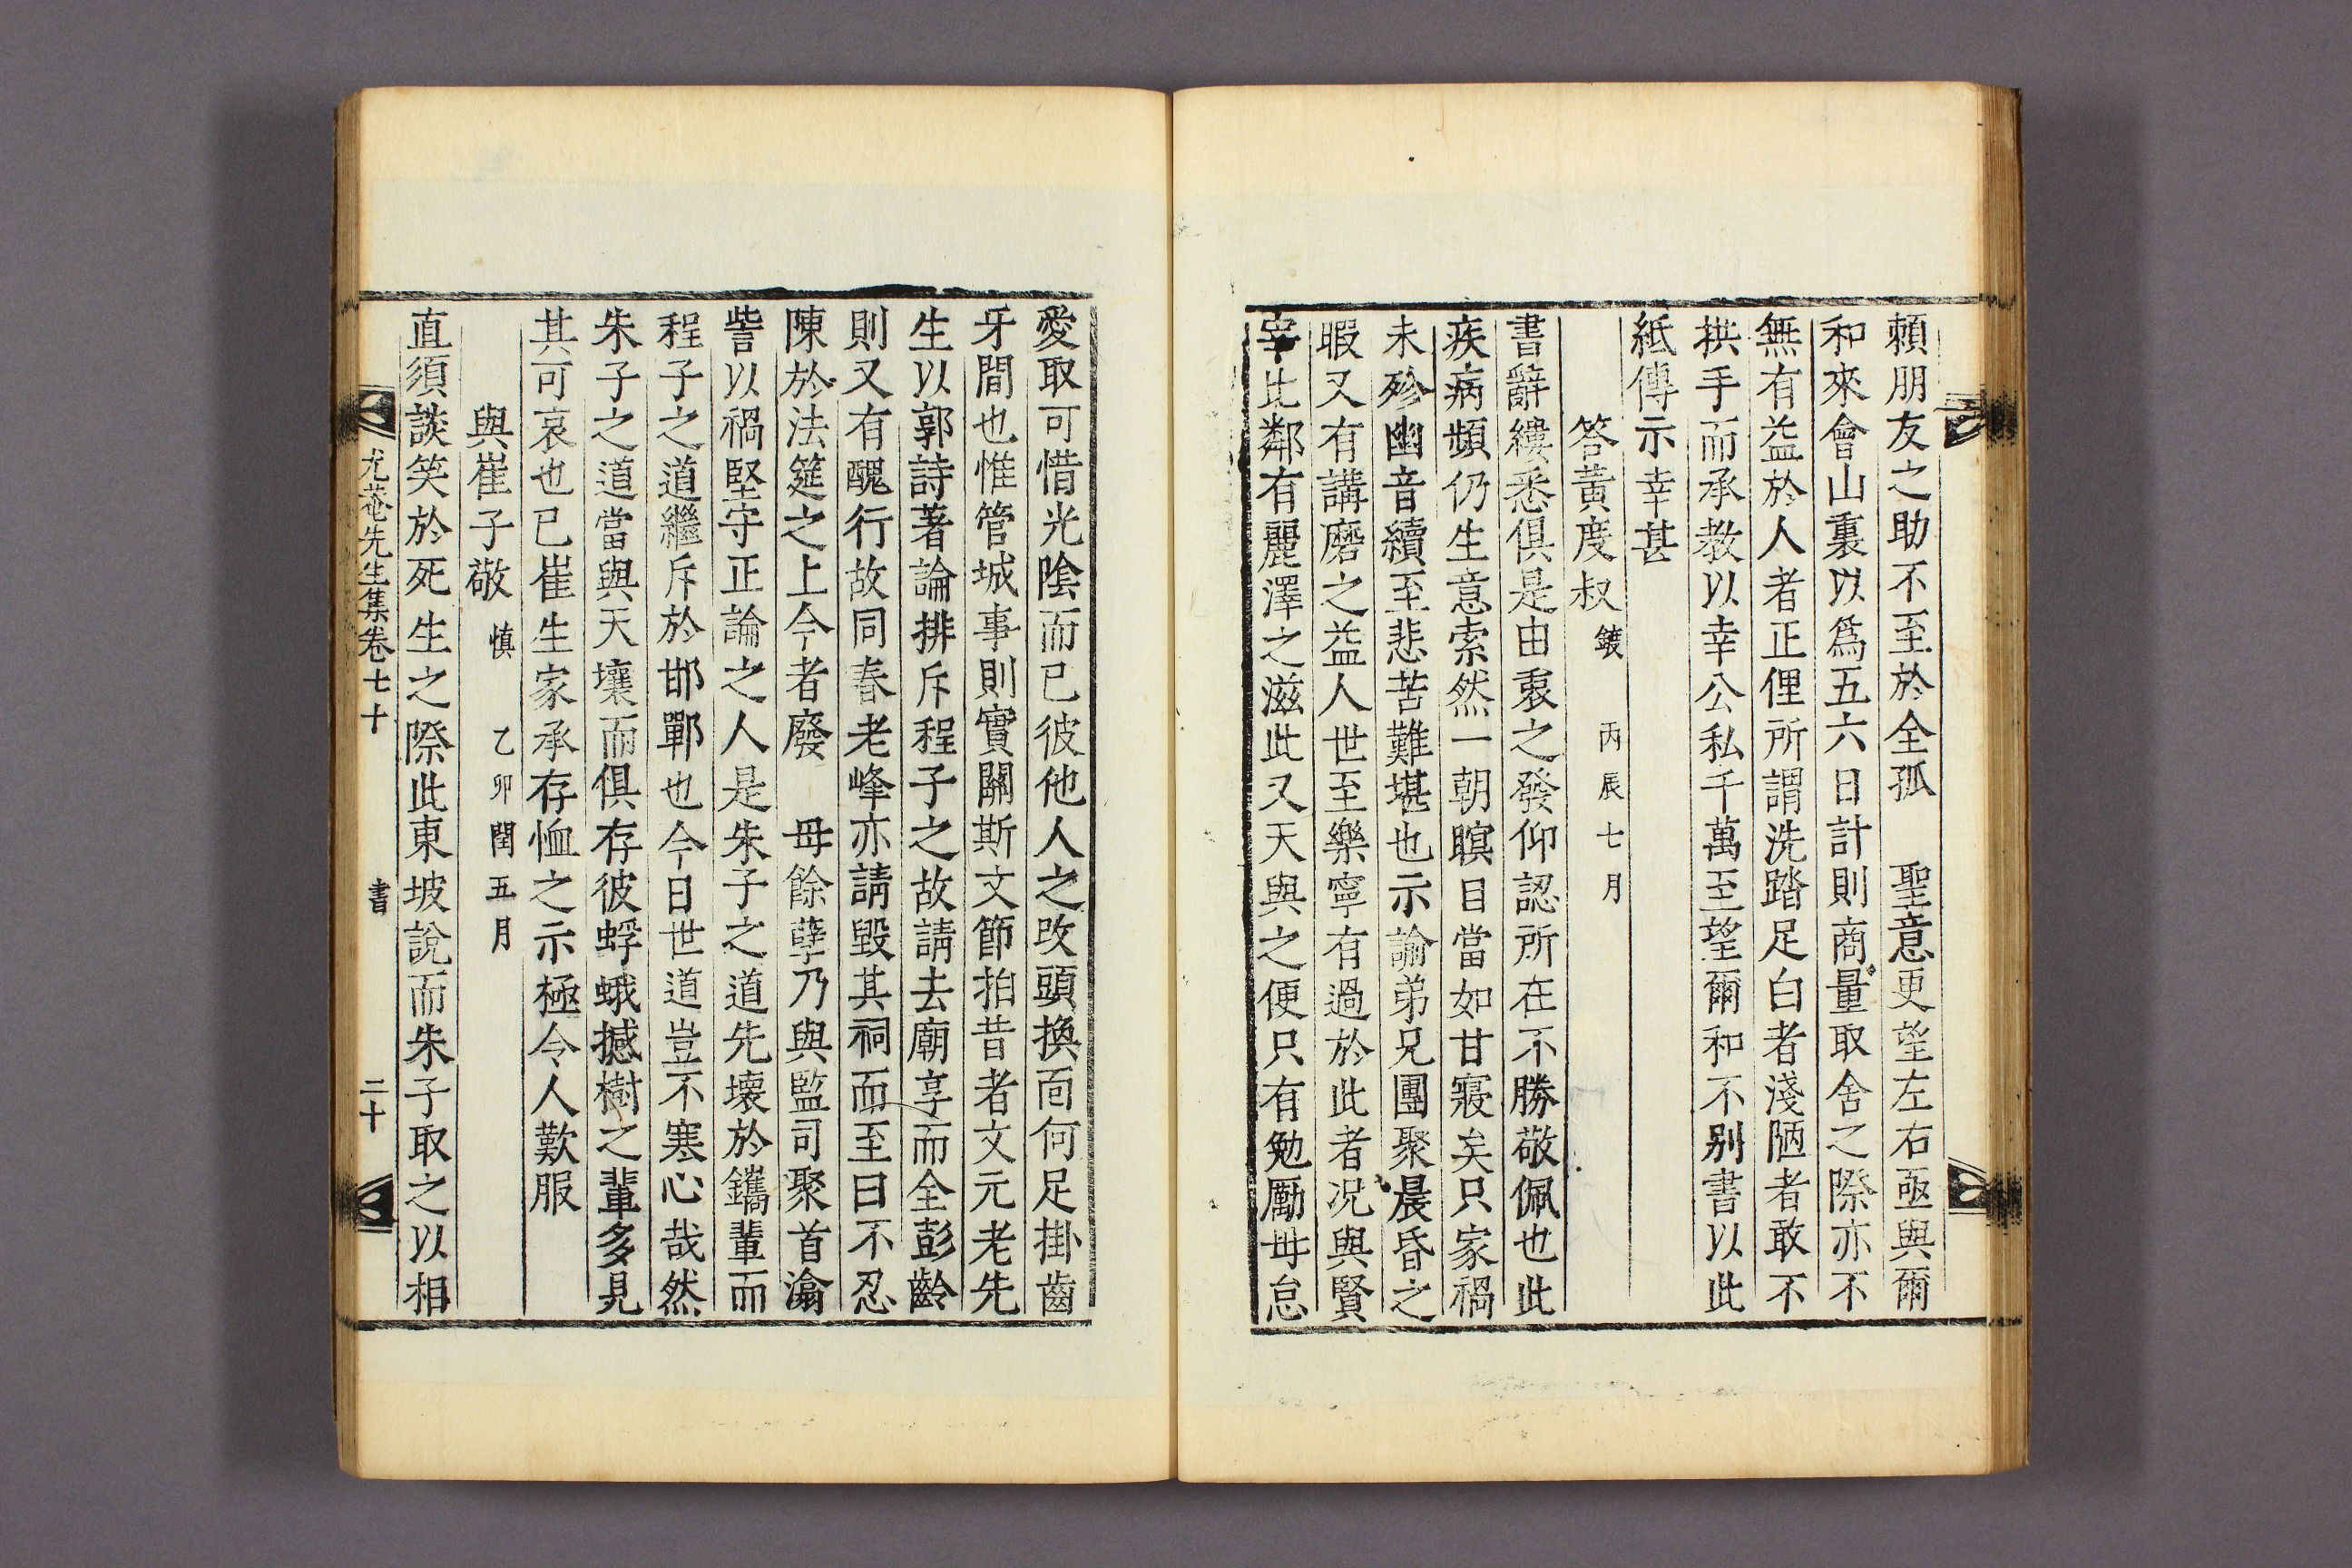 賴朋友之助不至於全孤　聖意更望左右亟與爾
和來會山裏以爲五六日計則商量取舍之際亦不
無有益於人者正俚所謂洗踏足白者淺陋者敢不
拱手而承敎以幸公私千萬至望爾和不別書以此
紙傳示幸甚
答黃度叔鑊　丙辰七月
書辭縷悉俱是由衷之發仰認所在不勝敬佩也此
疾病頻仍生意索然一朝瞑目當如甘寢矣只家禍
未殄幽音續至悲苦難堪也示諭弟兄團聚晨昏之
暇又有講磨之益人世至樂寧有過於此者况與賢
宰比鄰有麗澤之滋此又天與之便只有勉勵毋怠
愛取可惜光陰而已彼他人之改頭換面何足掛齒
牙間也惟管城事則實關斯文節拍昔者文元老先
生以郭詩著論排斥程子之故請去廟享而全彭齡
則又有醜行故同春老峰亦請毀其祠而至曰不忍
陳於法筵之上今者廢　母餘孽乃與監司聚首潝
訾以禍堅守正論之人是朱子之道先壞於鑴輩而
程子之道繼斥於邯鄲也今日世道豈不寒心哉然
朱子之道當與天壤而俱存彼蜉蛾撼樹之輩多見
其可哀也已崔生家承存恤之示極令人歎服
與崔子敬愼　乙卯閏五月
直須談笑於死生之際此東坡說而朱子取之以相
尤菴先生集卷七十　書　二十